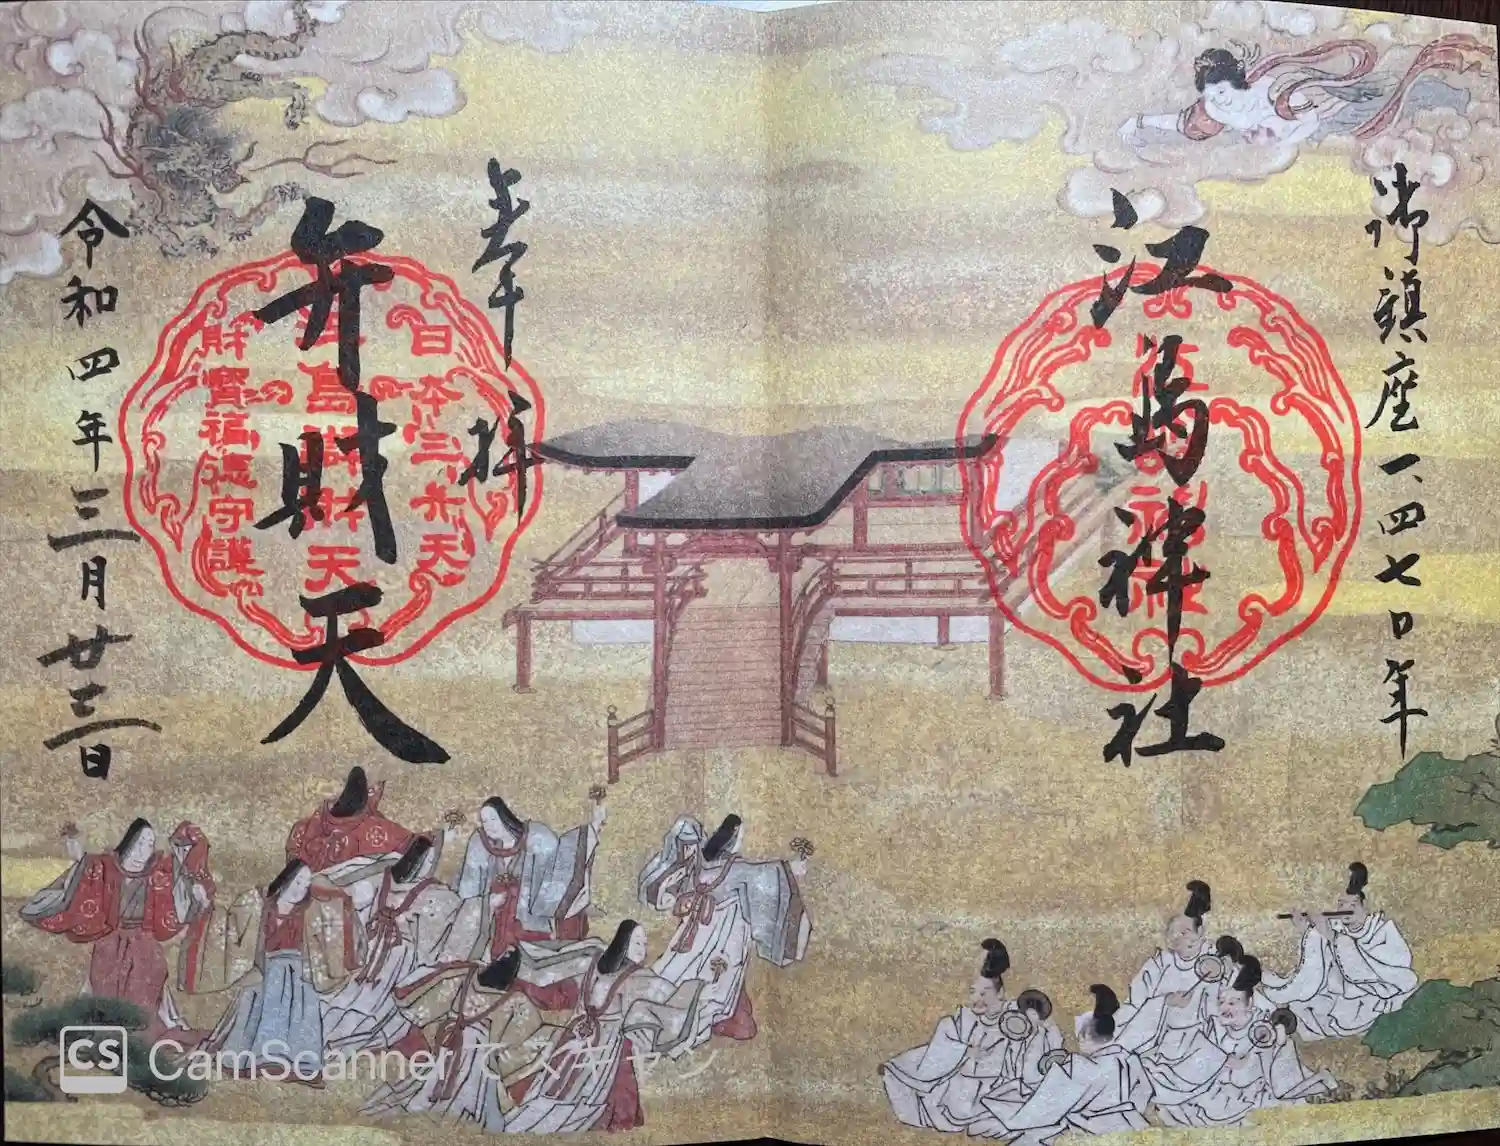 御鎮座一四七〇年
江島神社
奉拝
弁財天
日本三弁天
江島弁財天
財寶福徳守護
令和四年三月廿三日
CS CamScannerでスキャン